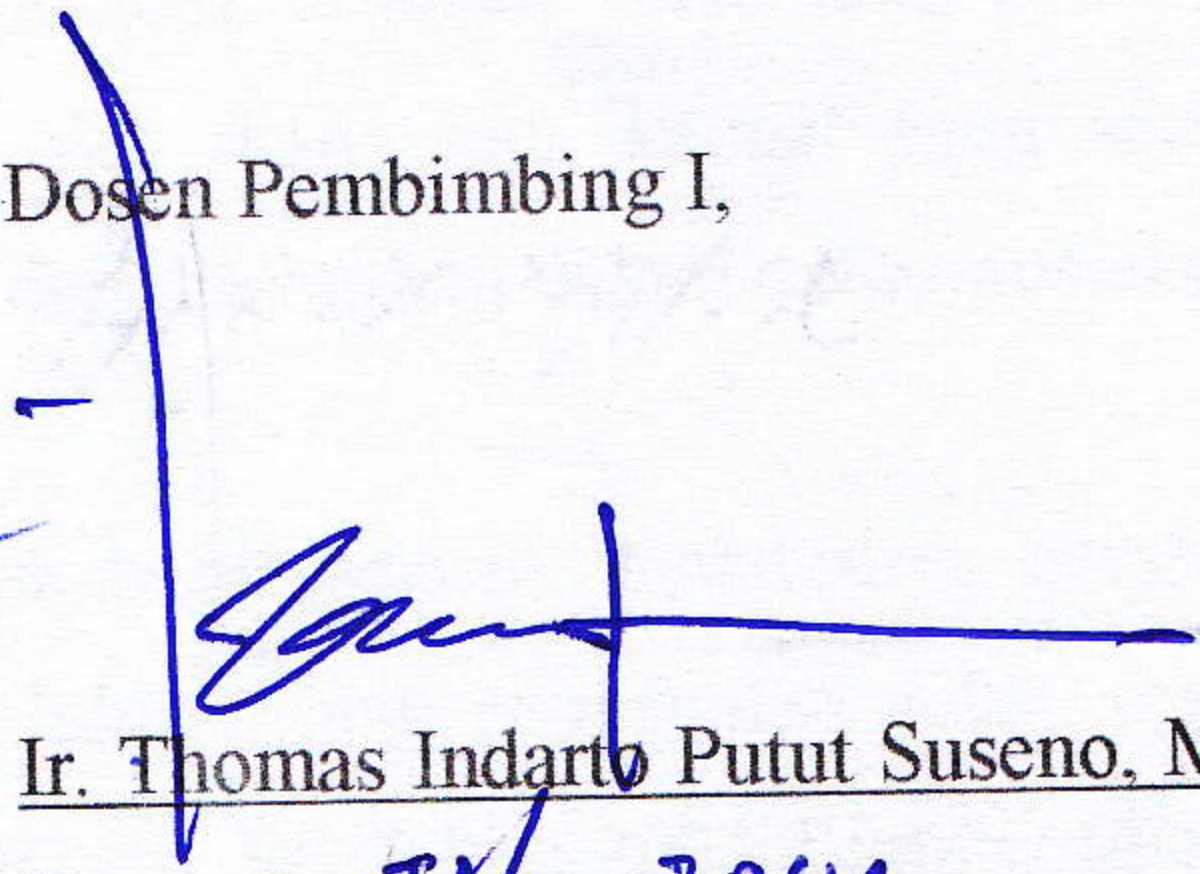 Dosen Pembimbing I,
Ir. Thomas Indarto Putut Suseno, M